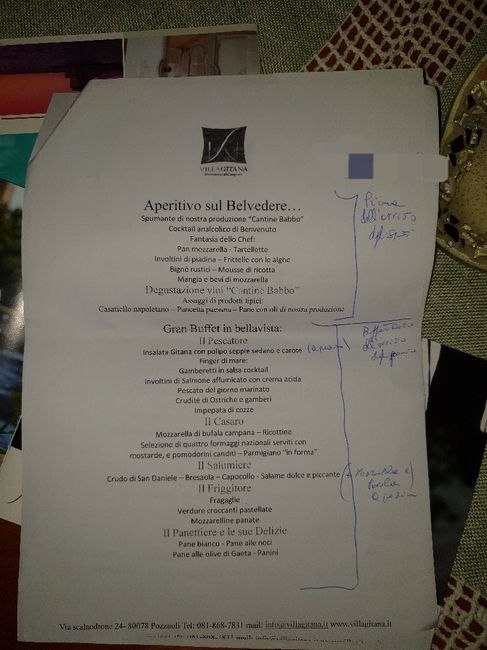 VILLAGITANA
Aperitivo sul Belvedere…
Spumante di nostra produzione "Cantine Babbo"
Cocktail analcolico di Benvenuto
Fantasia dello Chef:
Pan mozzarella - Tartellette
Involtini di piadina – Frittelle con le alghe
Bignè rustici – Mousse di ricotta
Mangia e bevi di mozzarella
Degustazione vini "Cantine Babbo"
Assaggi di prodotti tipici:
Casatiello napoletano – Pancetta paesana – Pane con oli di nostra produzione
Prima
dell'arrivo
Gran Buffet in bellavista:
Il Pescatore
Insalata Gitana con polipo seppie sedano e carote
Finger di mare:
Gamberetti in salsa cocktail
Involtini di Salmone affumicato con crema acida
Pescato del giorno marinato
Crudité di Ostriche e gamberi
Impepata di cozze
dell'arrivo
Il Casaro
Mozzarella di bufala campana – Ricottine
Selezione di quattro formaggi nazionali serviti con
mostarde, e pomodorini canditi – Parmigiano "in forma"
Il Salumiere
Crudo di San Daniele – Bresaola – Capocollo - Salame dolce e piccante
Il Friggitore
Fragaglie
Verdure croccanti pastellate
Mozzarelline panate
Il Panettiere e le sue Delizie
Pane bianco - Pane alle noci
Pane alle olive di Gaeta - Panini
Via scalandrone 24- 80078 Pozzuoli Tel: 081-868-7831 mail: info@villagitana.it www.villagitana.it